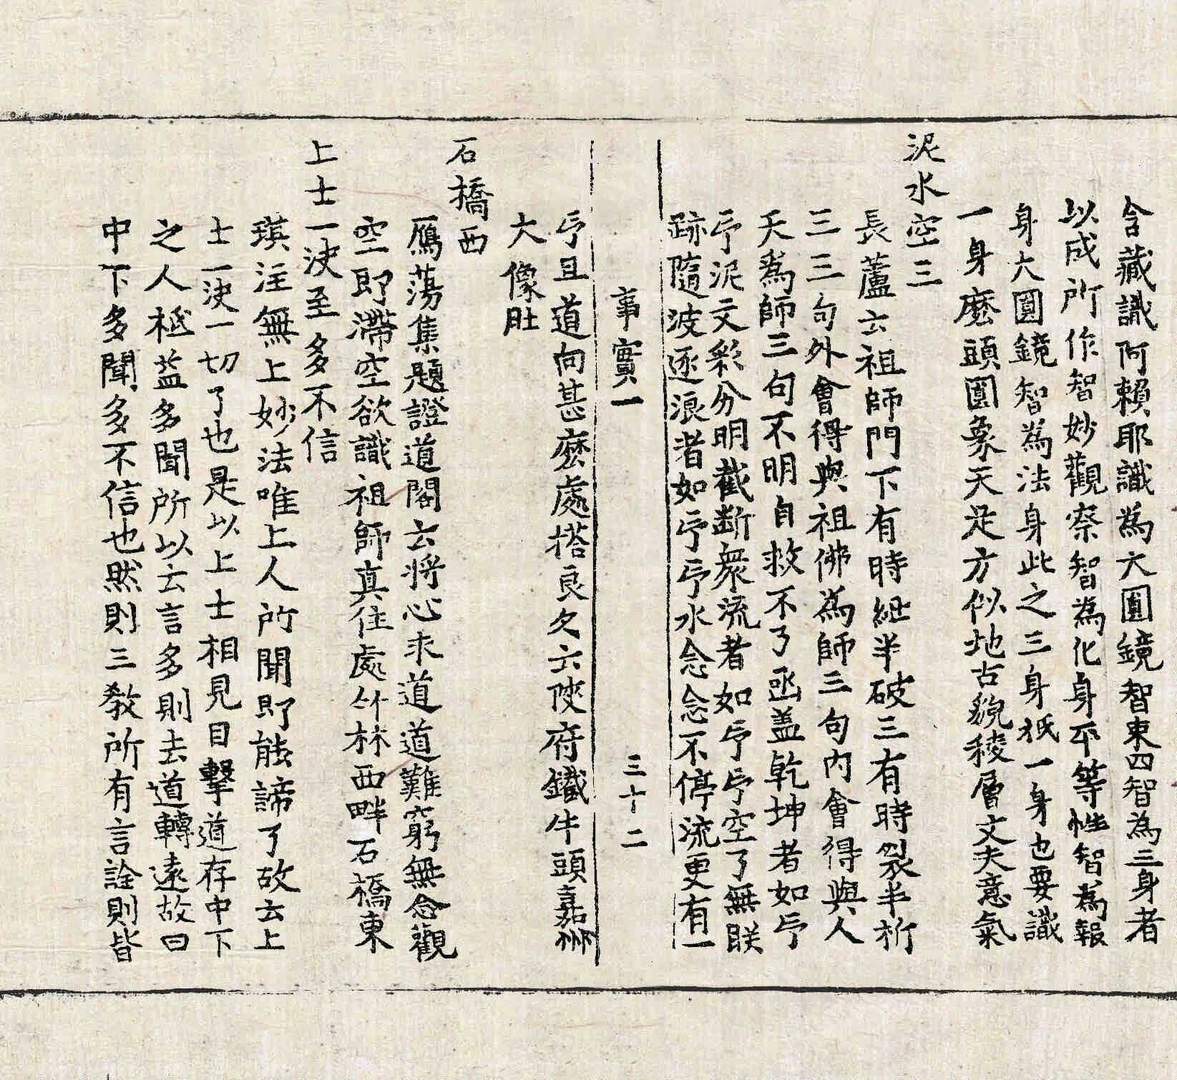 含藏識阿賴耶識為大圓鏡智束四智為三身者
以成所作智妙觀察智為化身平等性智為報
身大圓鏡智為法身此之三身秖一身也要識
一身麽頭圓象天足方似地古皃稜層丈夫意氣
泥水空三
長蘆云祖師門下有時絍半破三有時裂半析
三三句外會得與祖佛為師三句內會得與人
天為師三句不明自救不了函盖乾坤者如印
印泥文彩分明截斷衆流者如印印空了無朕
跡隨波逐浪者如印印水念念不停流更有一
事實一 三十二
印且道向甚麽處搭良久云陝府鐵牛頭嘉州
大像肚
石橋西
鴈蕩集題證道閣云將心求道道難窮無念觀
空即滯空欲識祖師真住處竹林西畔石橋東
上士一決至多不信
琪注無上妙法唯上人所聞即能諦了故云上
士一決一切了也是以上士相見目擊道存中下
之人秪益多聞所以云言多則去道轉遠故曰
中下多聞多不信也然則三教所有言詮則皆